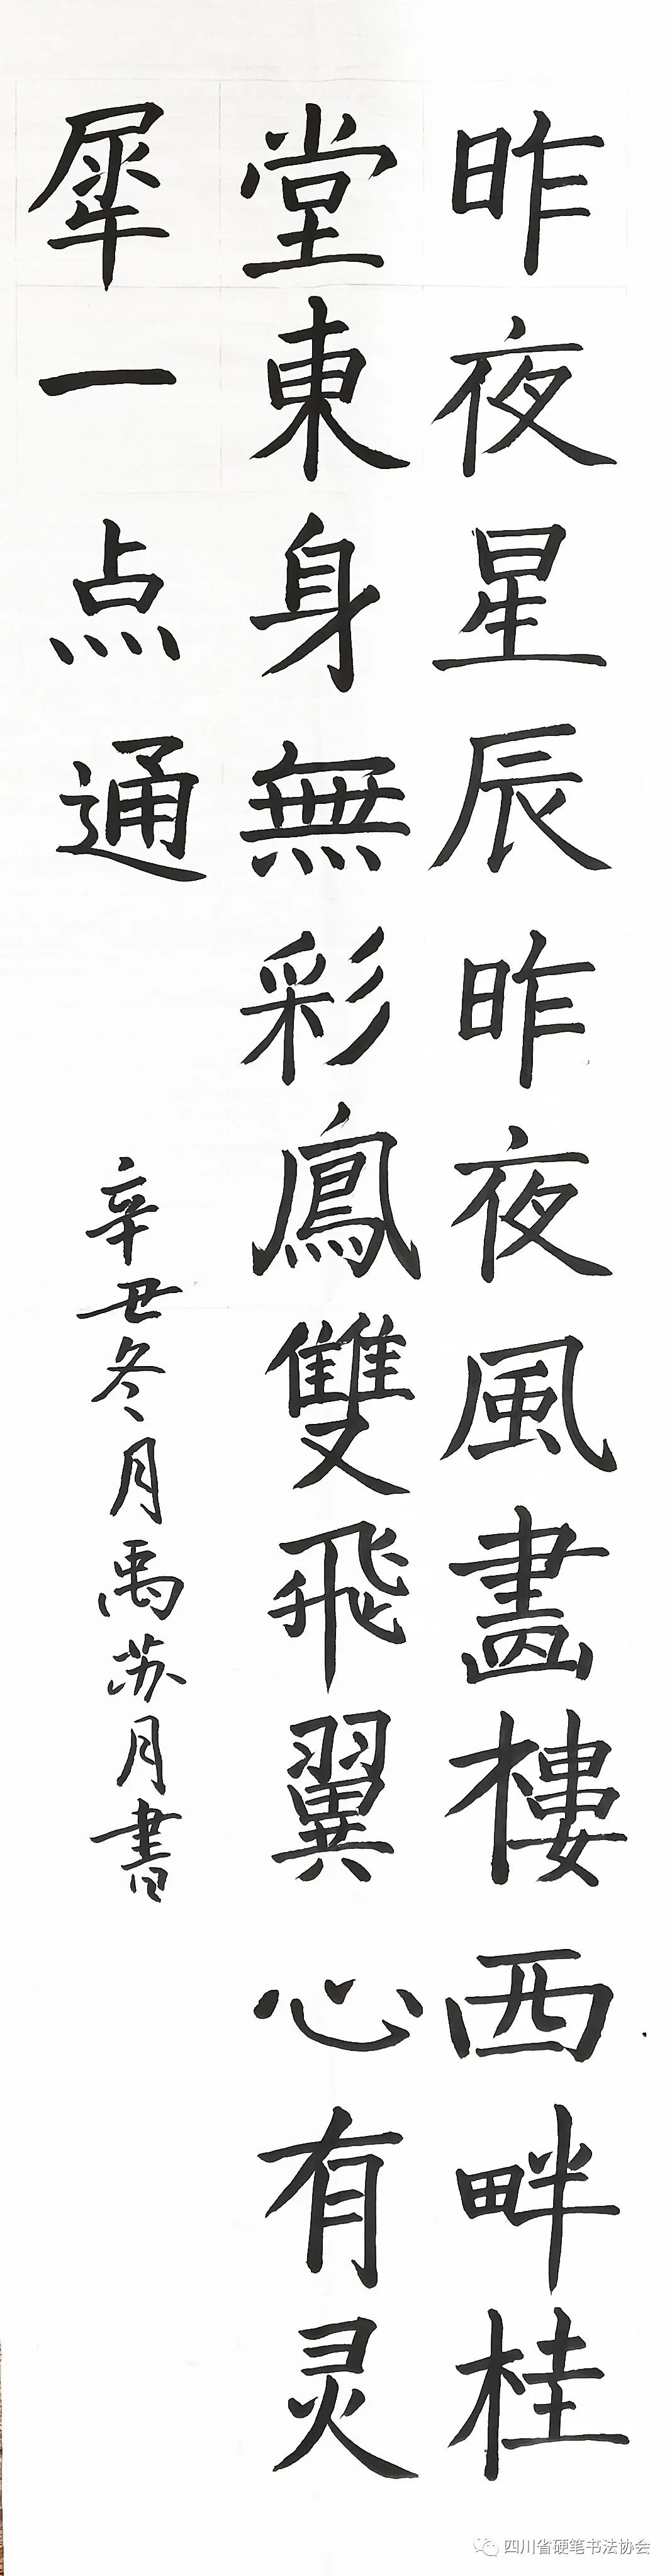 昨夜星辰昨夜風畫樓西畔桂
堂東身無彩鳳雙飛翼心有灵
犀一点通
辛丑冬月禹苏月書
四川省硬笔书法协会